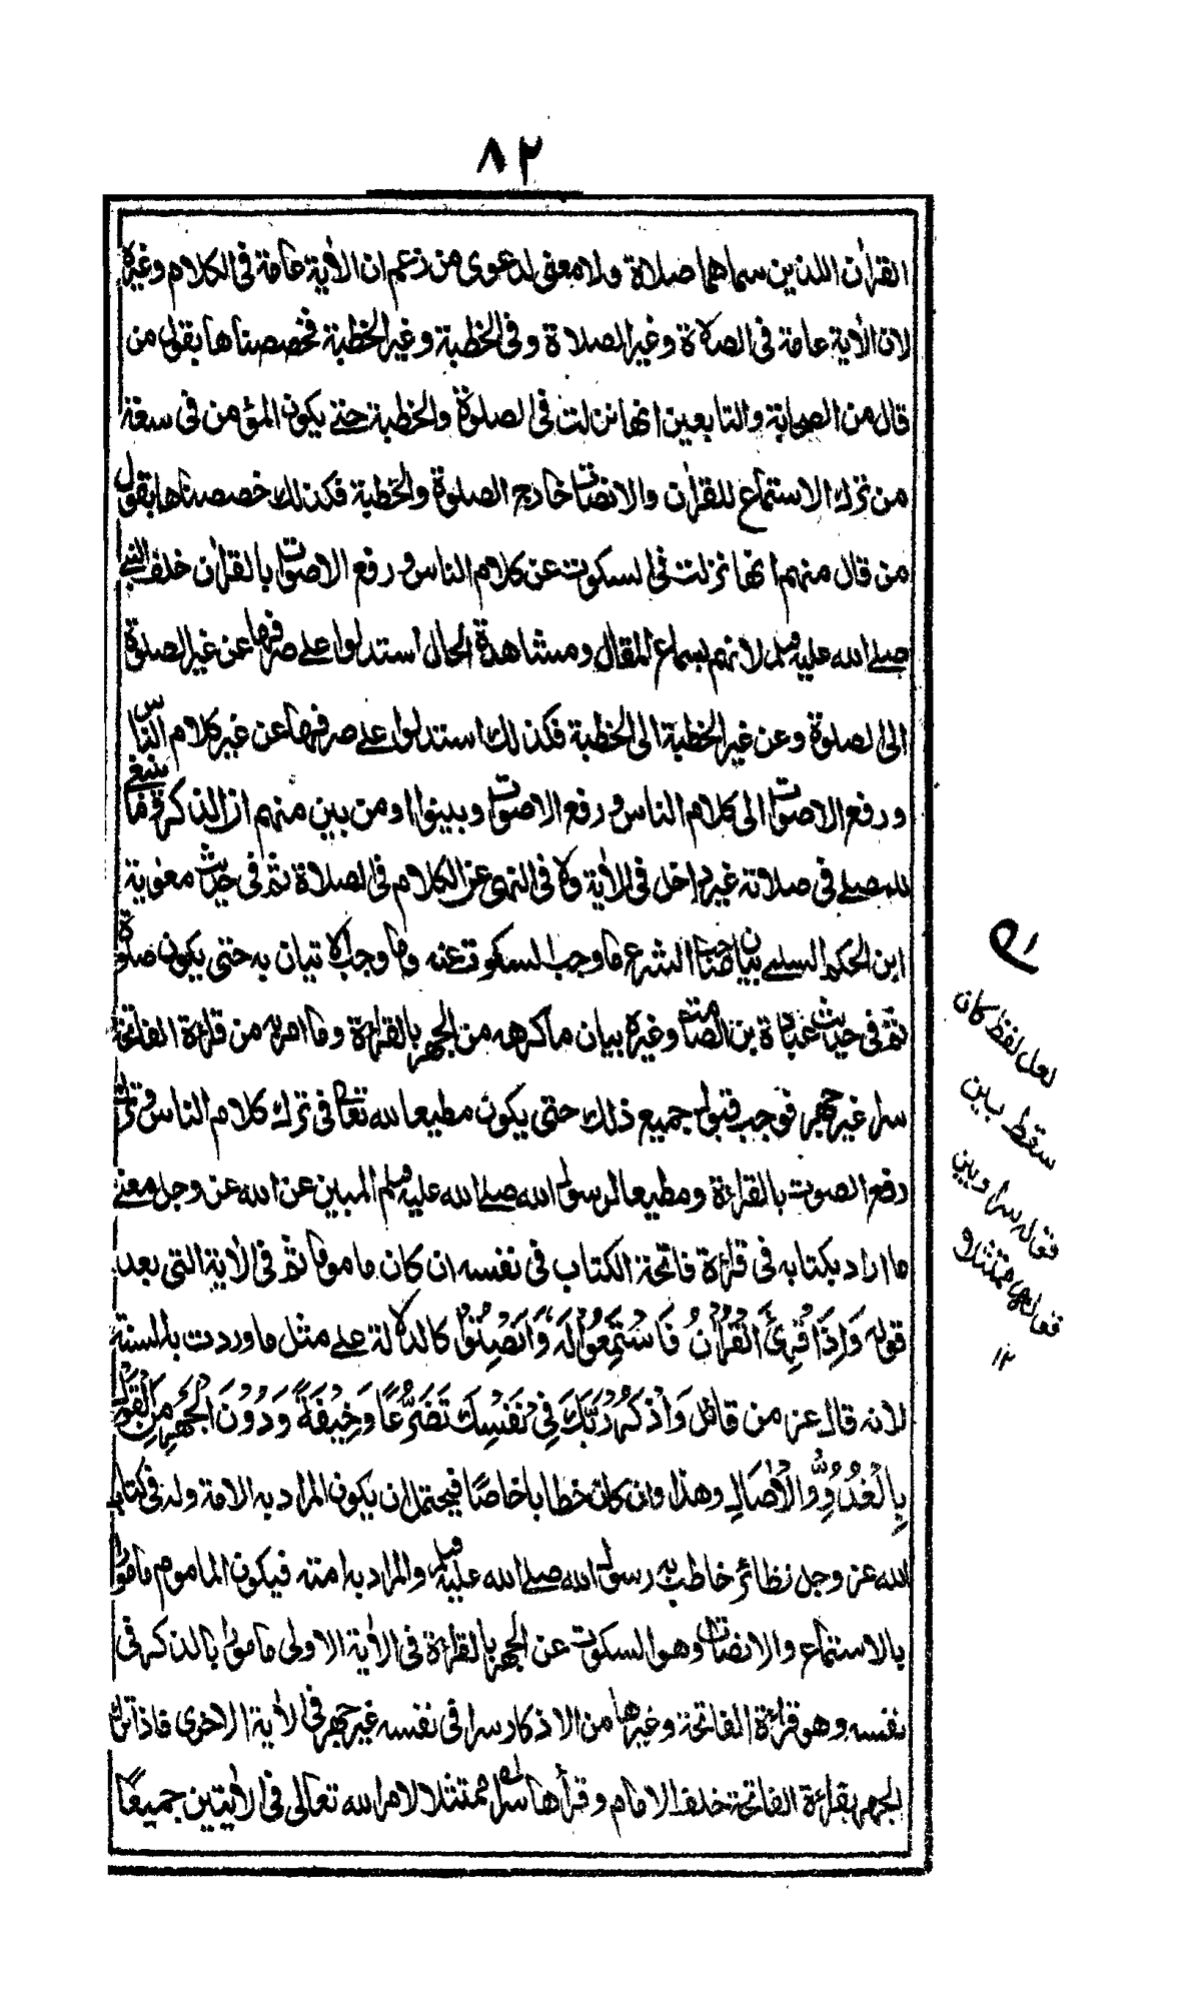 ٨٢
القرآن اللذين سماهما صلاة ولا معنى لدعوى من زعم ان الآية عامة فى الكلام وغيره
لان الآية عامة فى الصلاة وغير الصلاة وفى الخطبة وغير الخطبة فخصصناها بقول من
قال من الصحابة والتابعين انها نزلت فى الصلوة والخطبة حتى يكون المؤمن فى سعة
من ترك الاستماع للقرآن والانصات خارج الصلوة والخطبة فكذلك خصصناها بقول
من قال منهم انها نزلت فى السكوت عن كلام الناس ورفع الاصوات بالقرآن خلف النبى
صلى الله عليه وسلم لانهم بسماع المقال ومشاهدة الحال استدلوا على صرفها عن غير الصلوة
الى الصلوة وعن غير الخطبة الى الخطبة فكذلك استدلوا على صرفها عن غير كلام الناس
ورفع الاصوات الى كلام الناس ورفع الاصوات وبينوا او من بين منهم ان الذكر وما ينبغى
للمصلى فى صلاته غير داخل فى الآية ولا فى النهى عن الكلام فى الصلاة ثم فى حديث معوية
ابن الحكم السلمى بيان صاحب الشرع ما وجب السكوت عنه وما وجب الاتيان به حتى يكون صلوة
ثم فى حديث عبادة بن الصامت وغيره بيان ما كره من الجهر بالقراءة وما امر به من قراءة الفاتحة
سرا غير جهر فوجب قبول جميع ذلك حتى يكون مطيعا لله تعالى فى ترك كلام الناس وترك
رفع الصوت بالقراءة ومطيعا لرسول الله صلى الله عليه وسلم المبين عن الله عز وجل معنى
ما اراد بكتابه فى قراءة فاتحة الكتاب فى نفسه ان كان ماموما ثم فى الآية التى بعد
قوله وَاِذَا قُرِئَ الْقُرْآنُ فَاسْتَمِعُوْا لَهٗ وَاَنْصِتُوْا كالدلالة على مثل ما وردت به السنة
لانه قال عز من قائل وَاذْكُرْ رَّبَّكَ فِيْ نَفْسِكَ تَضَرُّعًا وَّخِيْفَةً وَّدُوْنَ الْجَهْرِ مِنَ الْقَوْلِ
بِالْغُدُوِّ وَالْاٰصَالِ وهذا وان كان خطابا خاصًا فيحتمل ان يكون المراد به الامة وله فى كتاب
الله عز وجل نظائر خاطب به رسول الله صلى الله عليه وسلم والمراد به امته فيكون الماموم مامورا
بالاستماع والانصات وهو السكوت عن الجهر بالقراءة فى الآية الاولى مامورا بالذكر فى
نفسه وهو قراءة الفاتحة وغيرها من الاذكار سرا فى نفسه غير جهر فى الآية الاخرى فاذا ترك
الجهر بقراءة الفاتحة خلف الامام وقرأها سرا ممتثلا لامر الله تعالى فى الآيتين جميعًا
لعل لفظ كان
سقط بين
قوله سرا وبين
قوله ممتثلا
١٢